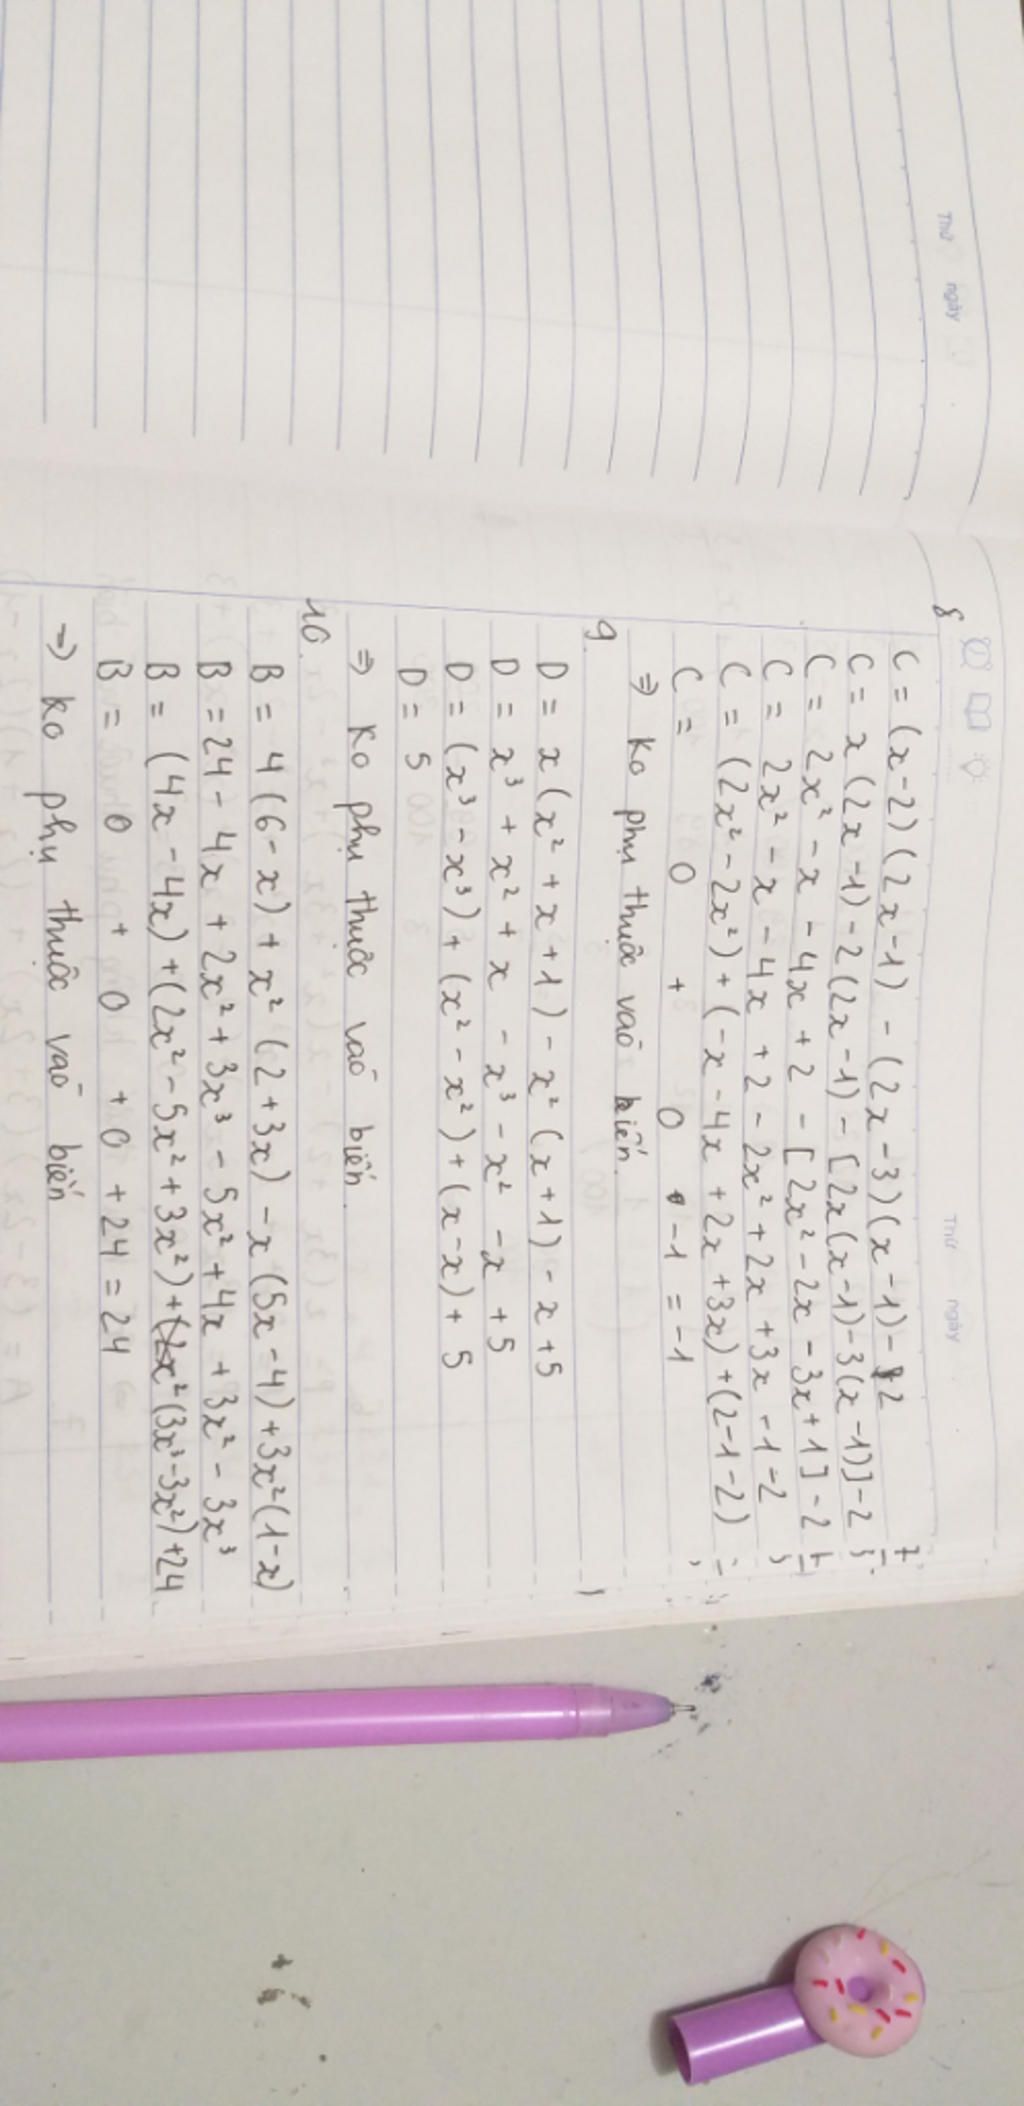 Thứ ngày
Thứ ngày
8
C = (x-2)(2x-1) - (2x-3)(x-1)-2
C = x(2x-1)-2(2x-1)-[2x(x-1)-3(x-1)]-2
C = 2x² - x - 4x + 2 - [2x² - 2x - 3x+1]-2
C = 2x² - x - 4x + 2 - 2x² + 2x + 3x - 1 - 2
C = (2x² - 2x²) + (-x - 4x + 2x + 3x) + (2-1-2)
C = 0 + 0 -1 = -1
⇒ Ko phụ thuộc vào biến.
9
D = x(x² + x + 1) - x²(x+1) - x + 5
D = x³ + x² + x - x³ - x² - x + 5
D = (x³ - x³) + (x² - x²) + (x-x) + 5
D = 5
⇒ Ko phụ thuộc vào biến.
10.
B = 4(6-x) + x²(2+3x) - x(5x-4) + 3x²(1-x)
B = 24 - 4x + 2x² + 3x³ - 5x² + 4x + 3x² - 3x³
B = (4x - 4x) + (2x² - 5x² + 3x²) + (3x³-3x²) + 24
B = 0 + 0 + 0 + 24 = 24
⇒ Ko phụ thuộc vào biến